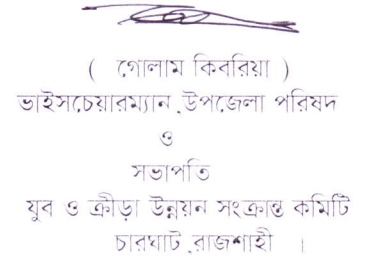 ( গোলাম কিবরিয়া )
ভাইসচেয়ারম্যান ,উপজেলা পরিষদ
ও
সভাপতি
যুব ও ক্রীড়া উন্নয়ন সংক্রান্ত কমিটি
চারঘাট ,রাজশাহী ।